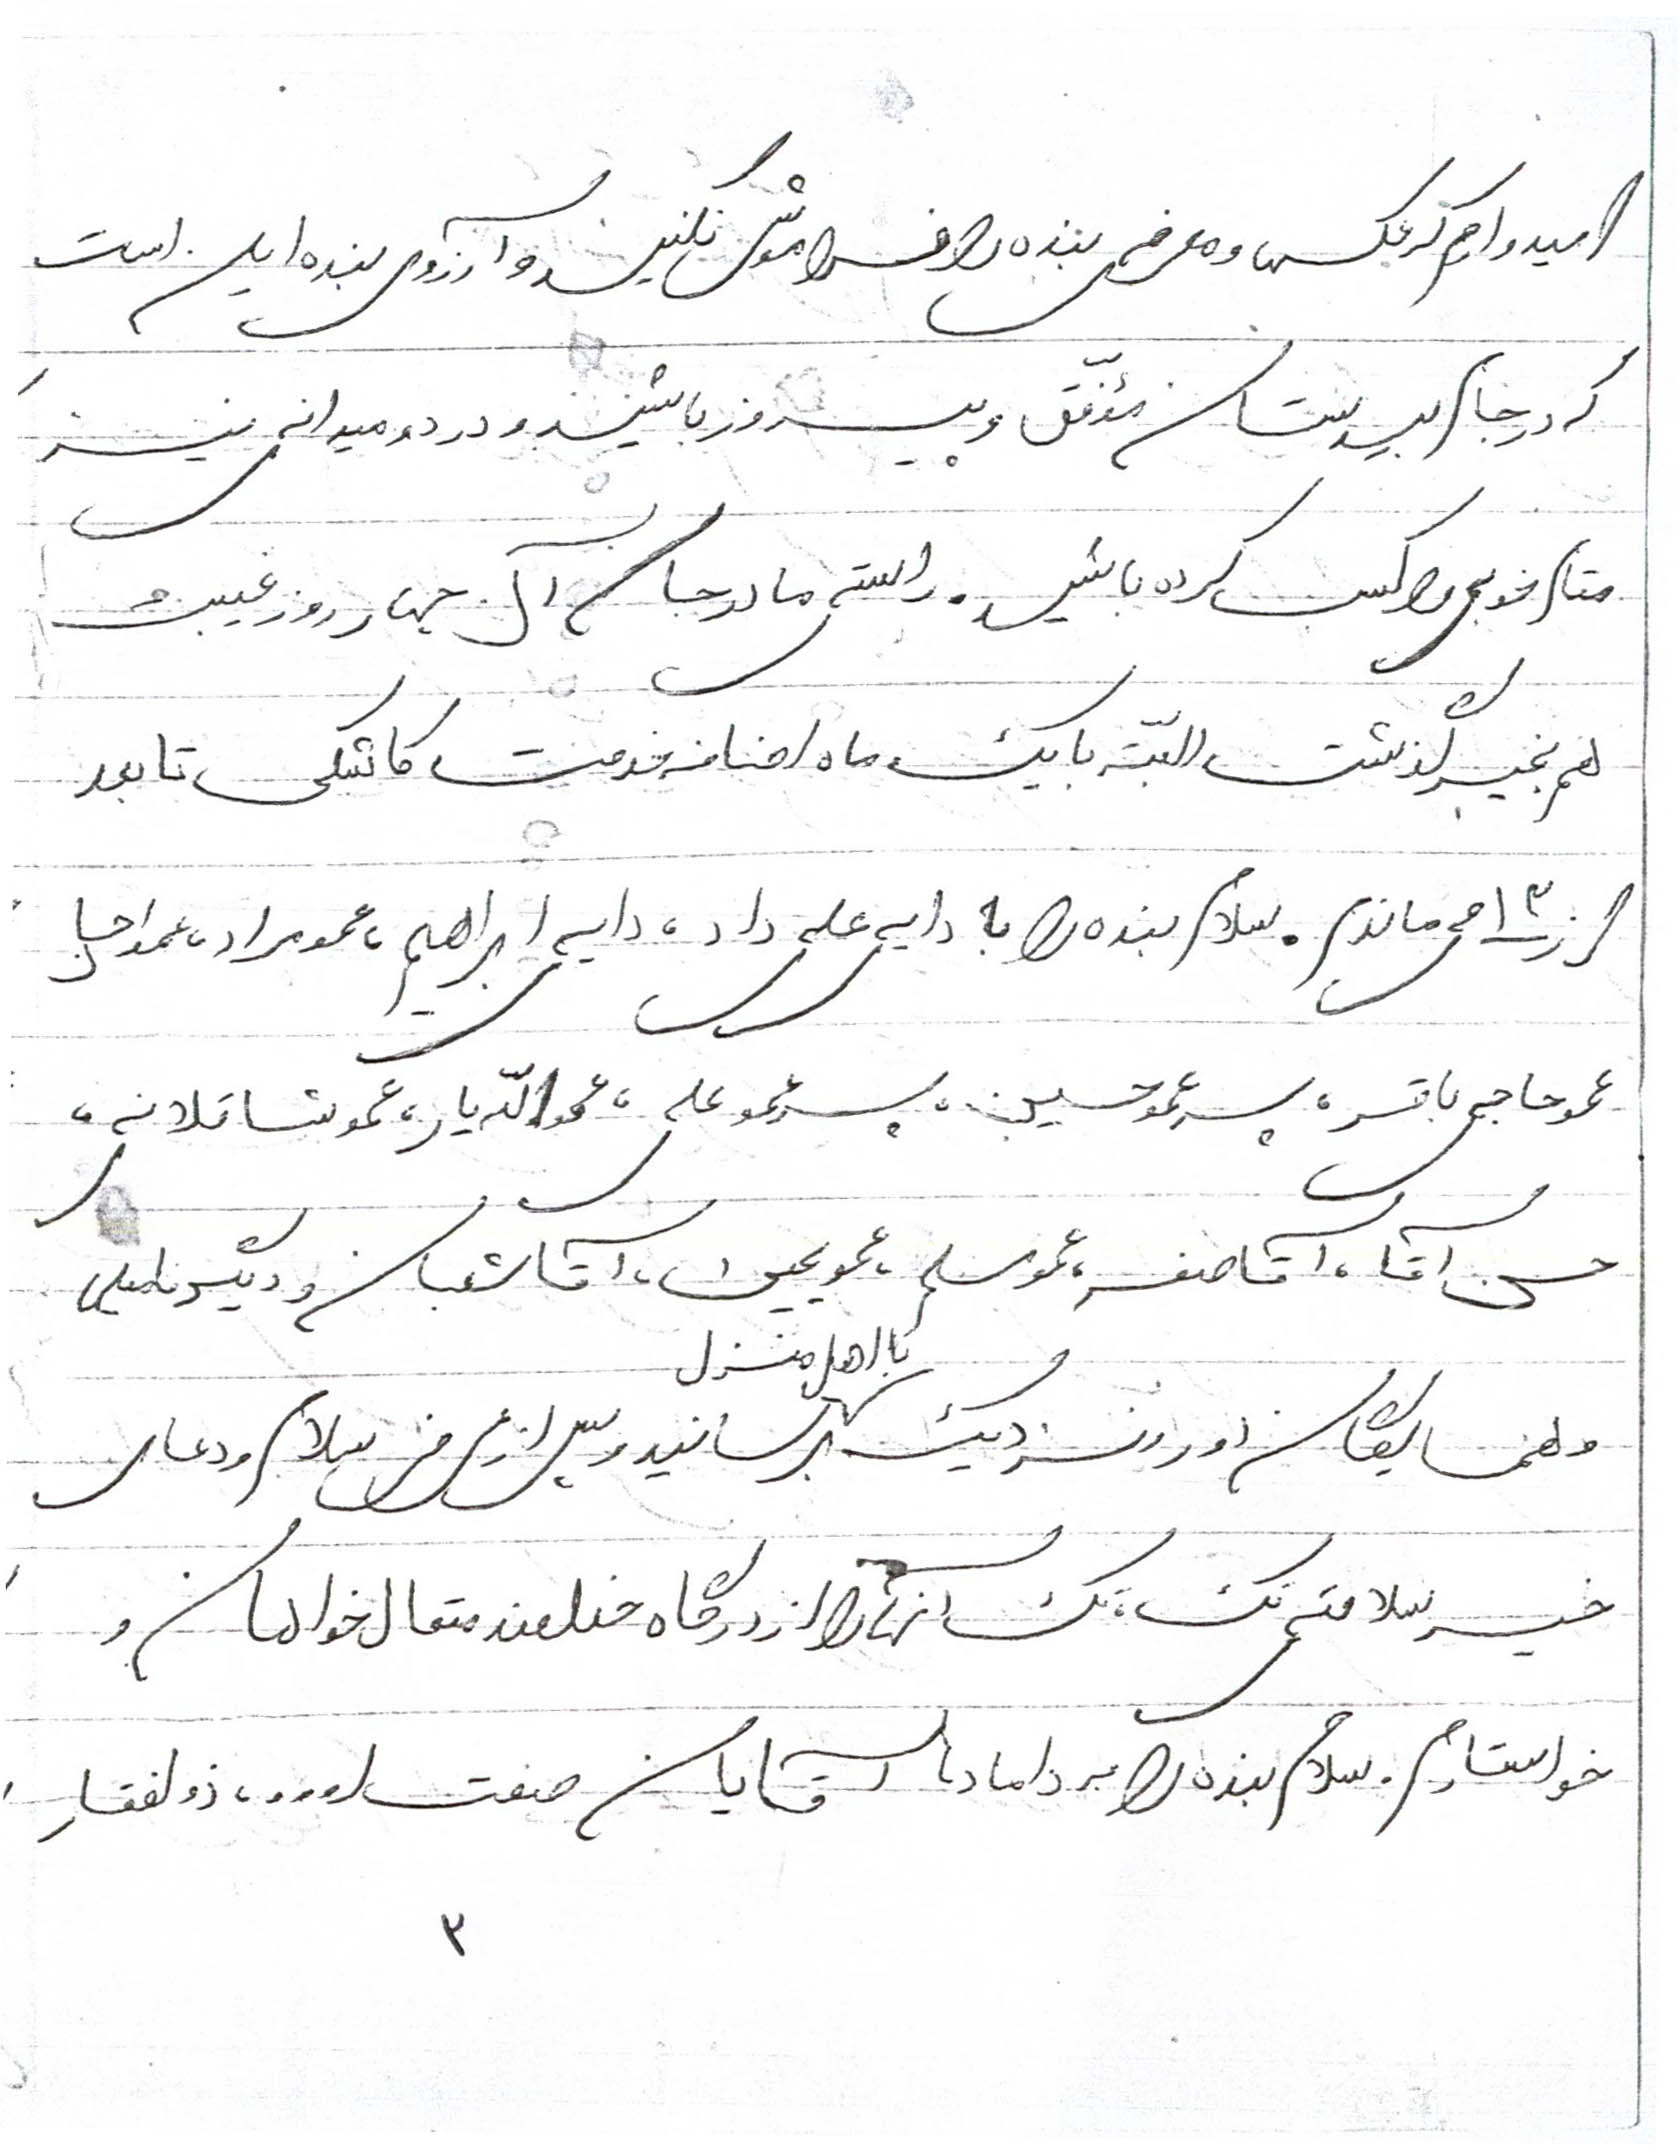 امیدوارم که عکسها و عرض بنده را فراموش نکنید و آرزوی بنده این است
که در جام دبیرستان مؤفّق و پیروز باشید و در دو میدانی نیز
مقام خوبی را کسب کرده باشید. راستی مادرجان آن چهار روز غیبت
هم بخیر گذشت البتّه با یک ماه اضافه خدمت کاشکی تا بعد
از ۱۳ می ماندم. سلام بنده را به دایی علی داد، دایی ابراهیم، عمو مراد، عمو
عمو حاجی باقر، پسر عمو حسین، پسر عمو علی، عمو اللّه یار، عمو شاقلانی،
حسن آقا، آقا صفر، عمو سلم، عمو یحیی، آقا شعبان و دیگر فامیلی
با اهل منزل
و همسایگان دور و نزدیک برسانید و پس از عرض سلام و دعای
خیر سلامتی تک تک آنها را از درگاه خداوند متعال خواهان و
خواستارم. سلام بنده را به دامادها آقایان صفت ا...، ذولفقار
۳